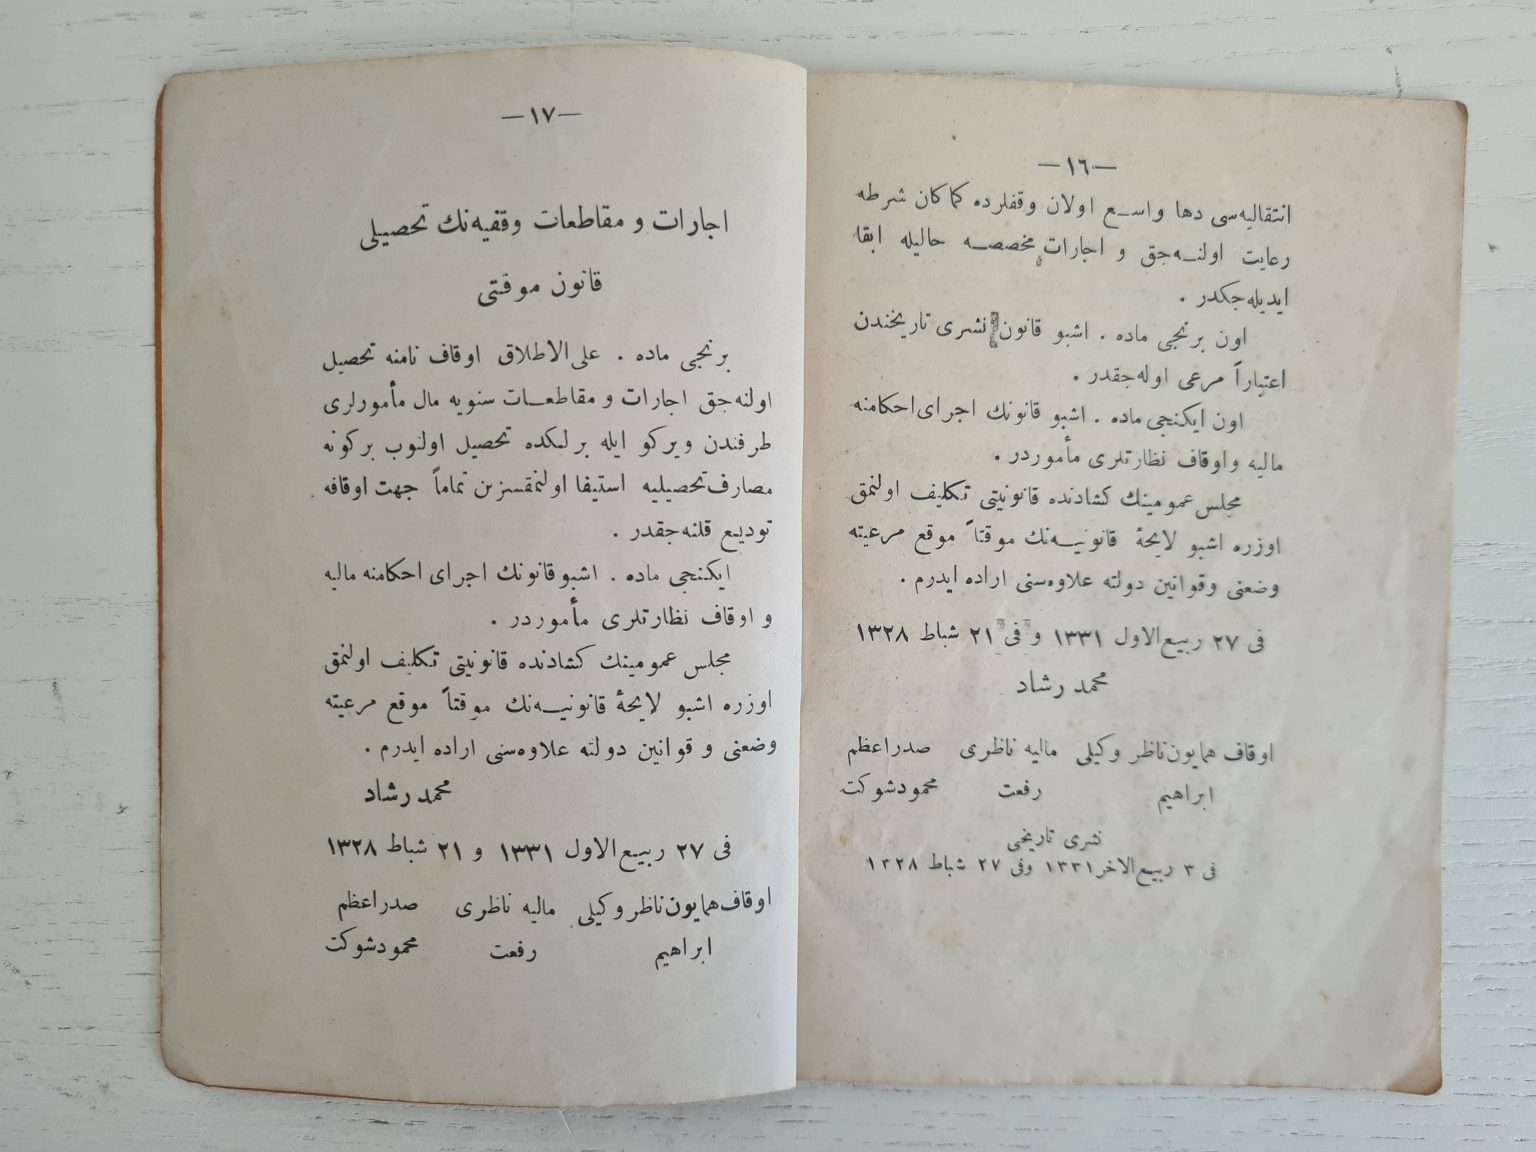 —١٦—
انتقالیه‌سی دها واسـع اولان وقفلرده كماكان شرطه
رعایت اولنـه‌جق و اجارات مخصصـه حالیله ابقا
ایدیله‌جكدر .
اون برنجی ماده . اشبو قانون نشری تاریخندن
اعتباراً مرعی اوله‌جقدر .
اون ایكنجی ماده . اشبو قانونك اجرای احكامنه
مالیه واوقاف نظارتلری مأموردر .
مجلس عمومینك كشادنده قانونیتی تكلیف اولنمق
اوزره اشبو لایحهٔ قانونیـه‌نك موقتاً موقع مرعیته
وضعنی وقوانین دولته علاوه‌سنی اراده ایدرم .
فی ٢٧ ربیع‌الاول ١٣٣١ و فی ٢١ شباط ١٣٢٨
محمد رشاد
اوقاف همایون‌ناظر وكیلی مالیه ناظری صدراعظم
ابراهیم رفعت محمودشوكت
نشری تاریخی
فی ٣ ربیع‌الاخر ١٣٣١ وفی ٢٧ شباط ١٣٢٨
—١٧—
اجارات و مقاطعات وقفیه‌نك تحصیلی
قانون موقتی
برنجی ماده . علی‌الاطلاق اوقاف نامنه تحصیل
اولنه‌جق اجارات و مقاطعـات سنویه مال مأمورلری
طرفندن ویركو ایله برلكده تحصیل اولنوب بركونه
مصارف‌تحصیلیه استیفا اولنمقسزین تماماً جهت اوقافه
تودیع قلنه‌جقدر .
ایكنجی ماده . اشبوقانونك اجرای احكامنه مالیه
و اوقاف نظارتلری مأموردر .
مجلس عمومینك كشادنده قانونیتی تكلیف اولنمق
اوزره اشبو لایحهٔ قانونیـه‌نك موقتاً موقع مرعیته
وضعنی و قوانین دولته علاوه‌سنی اراده ایدرم .
محمد رشاد
فی ٢٧ ربیع‌الاول ١٣٣١ و ٢١ شباط ١٣٢٨
اوقاف‌همایون‌ناظر وكیلی مالیه ناظری صدراعظم
ابراهیم رفعت محمودشوكت